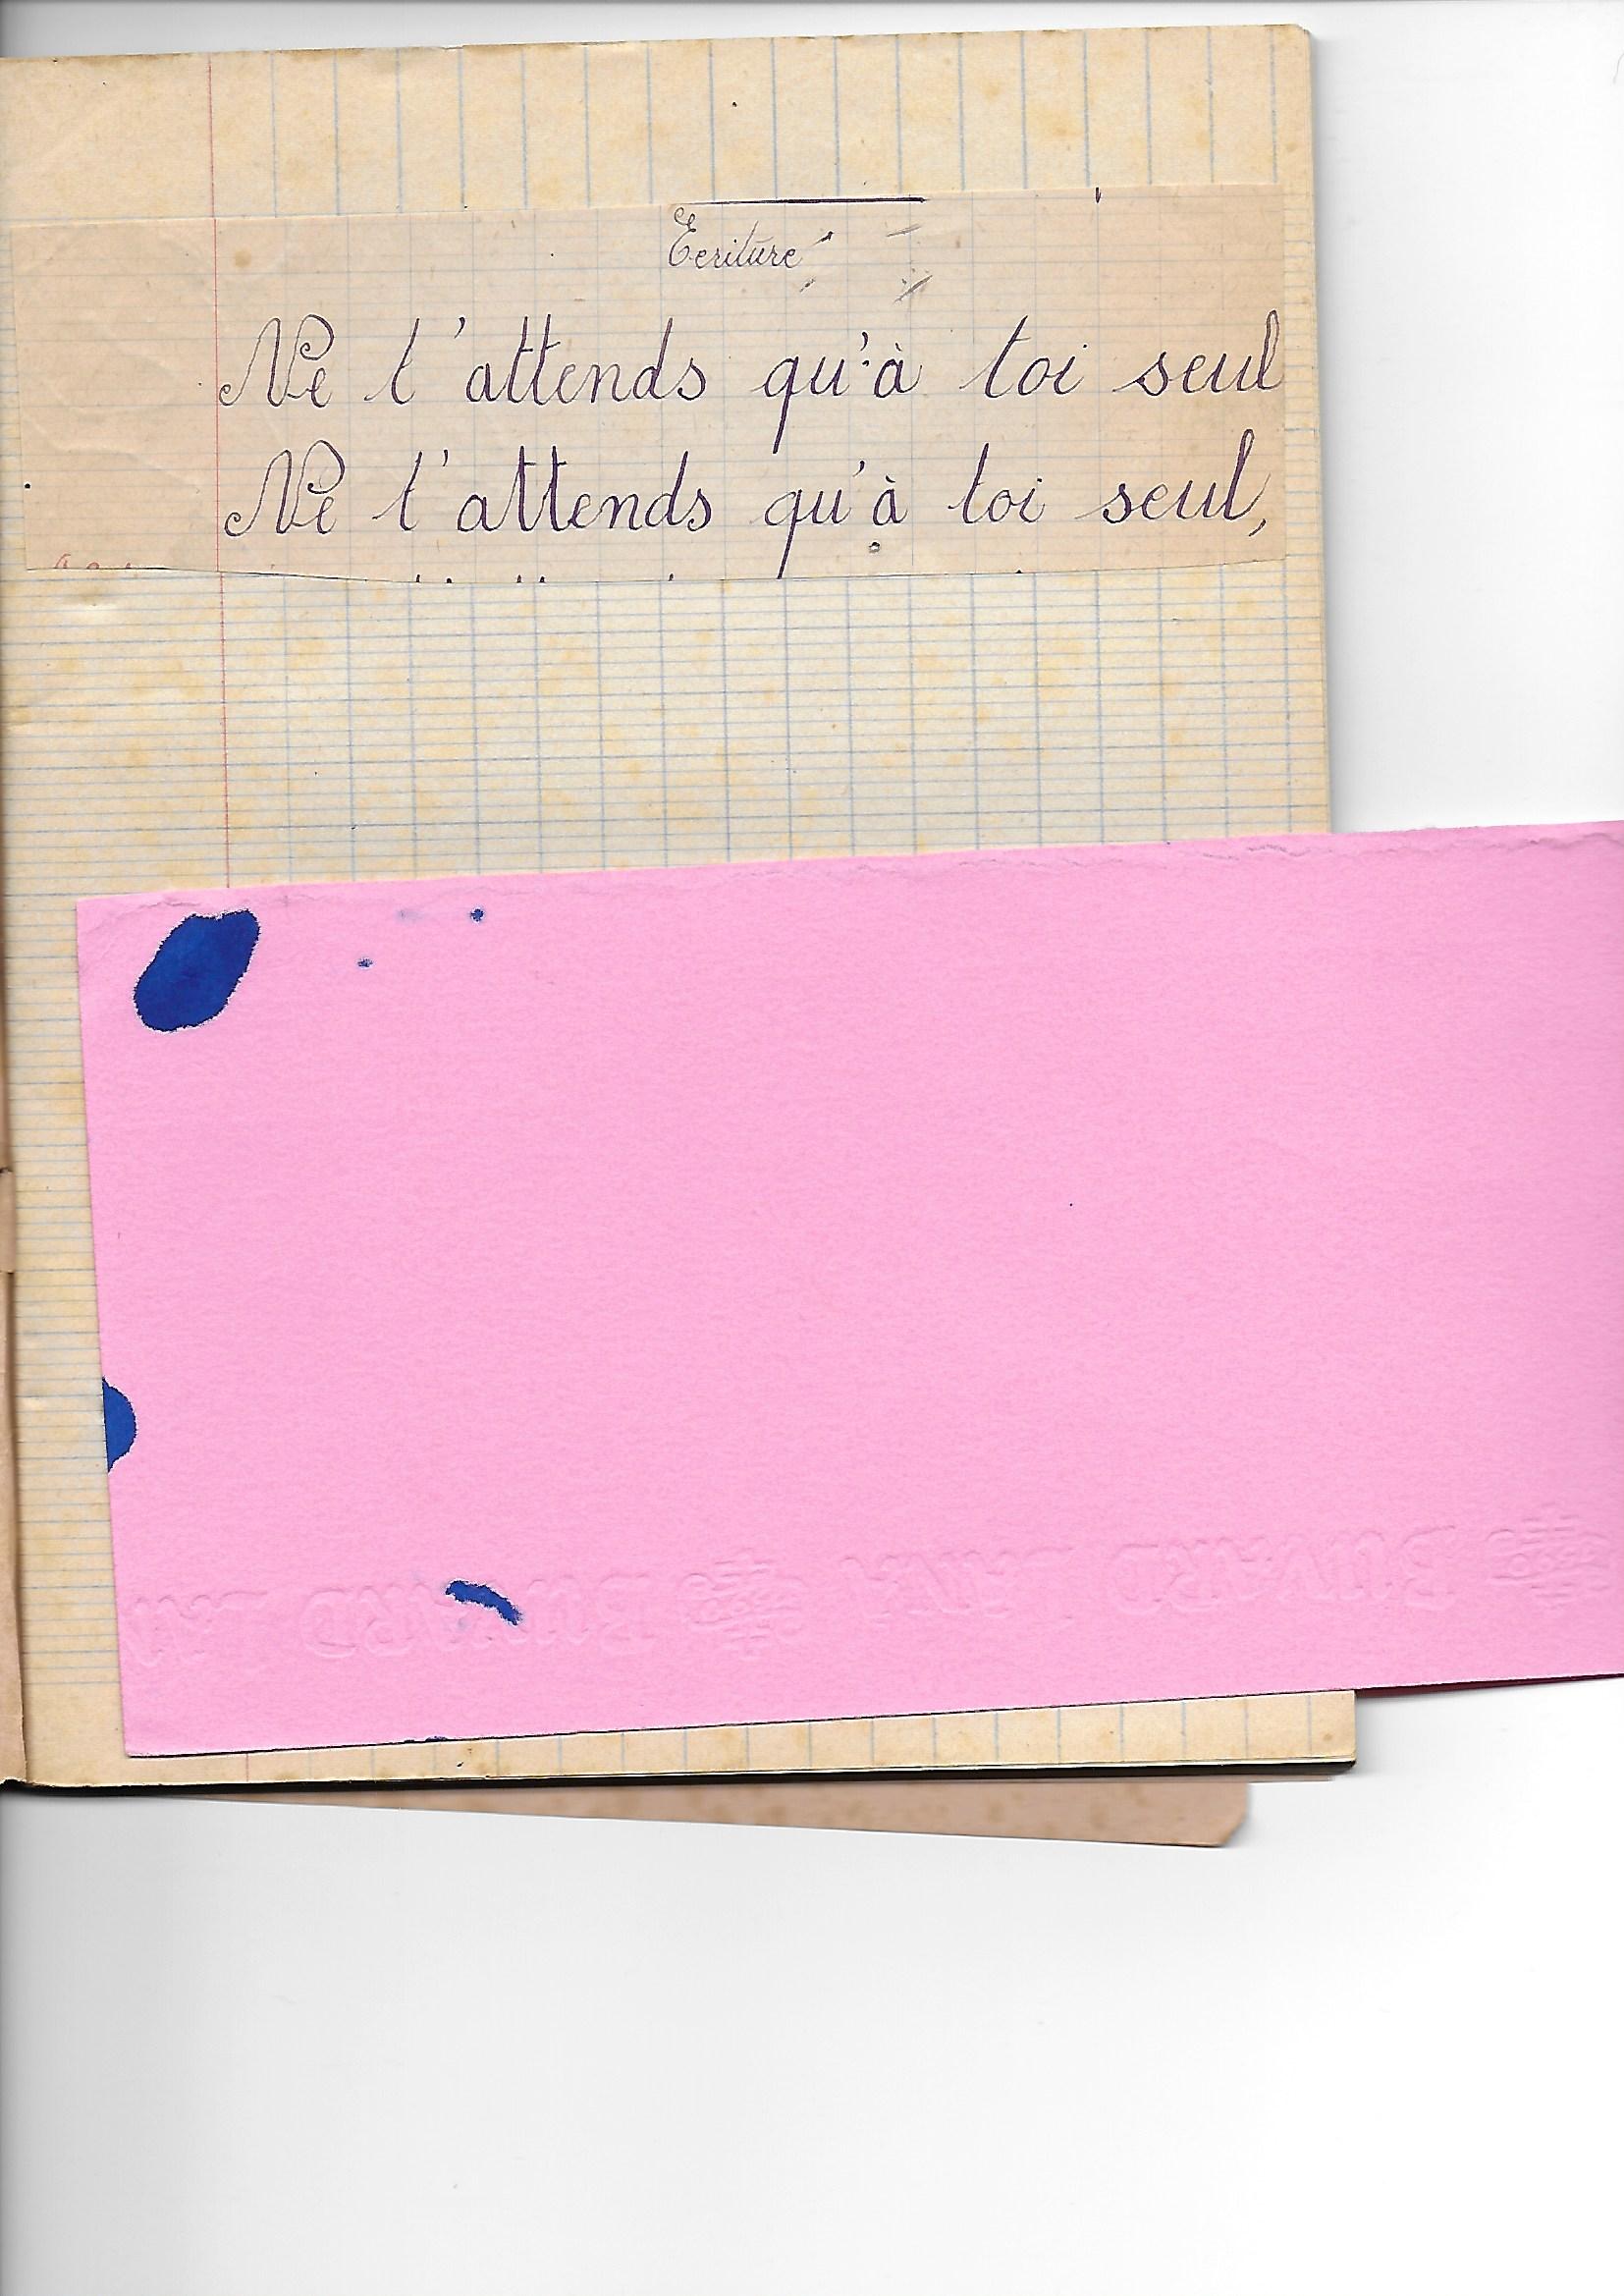 Ecriture
Ne t'attends qu'à toi seul
Ne t'attends qu'à toi seul,
BUVARD
BUVARD